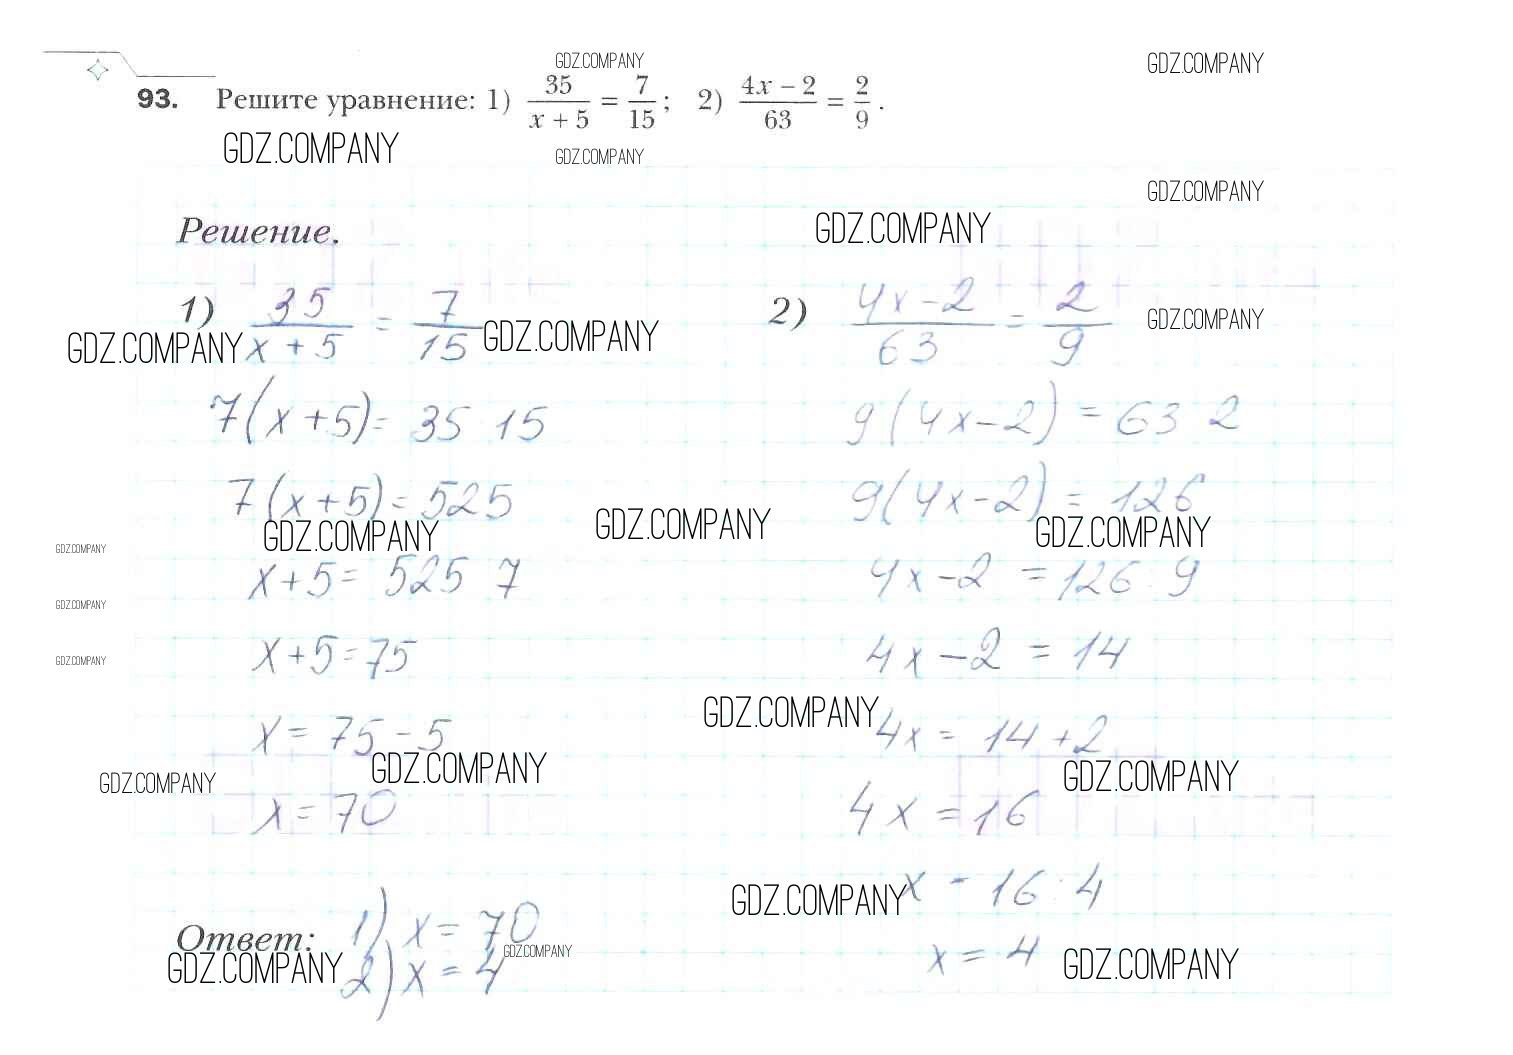 GDZ.COMPANY
GDZ.COMPANY
93. Решите уравнение: 1) 35/(x + 5) = 7/15; 2) (4x − 2)/63 = 2/9.
GDZ.COMPANY
GDZ.COMPANY
GDZ.COMPANY
Решение.
GDZ.COMPANY
1) 35/(x + 5) = 7/15
2) (4x − 2)/63 = 2/9
GDZ.COMPANY
GDZ.COMPANY
GDZ.COMPANY
7(x + 5) = 35 15
9(4x − 2) = 63 2
7(x + 5) = 525
9(4x − 2) = 126
GDZ.COMPANY
GDZ.COMPANY
GDZ.COMPANY
GDZ.COMPANY
x + 5 = 525 7
4x − 2 = 126 : 9
GDZ.COMPANY
x + 5 = 75
4x − 2 = 14
GDZ.COMPANY
GDZ.COMPANY
x = 75 − 5
4x = 14 + 2
GDZ.COMPANY
GDZ.COMPANY
GDZ.COMPANY
x = 70
4x = 16
x = 16 : 4
GDZ.COMPANY
Ответ: 1) x = 70
GDZ.COMPANY
x = 4
GDZ.COMPANY
2) x = 4
GDZ.COMPANY